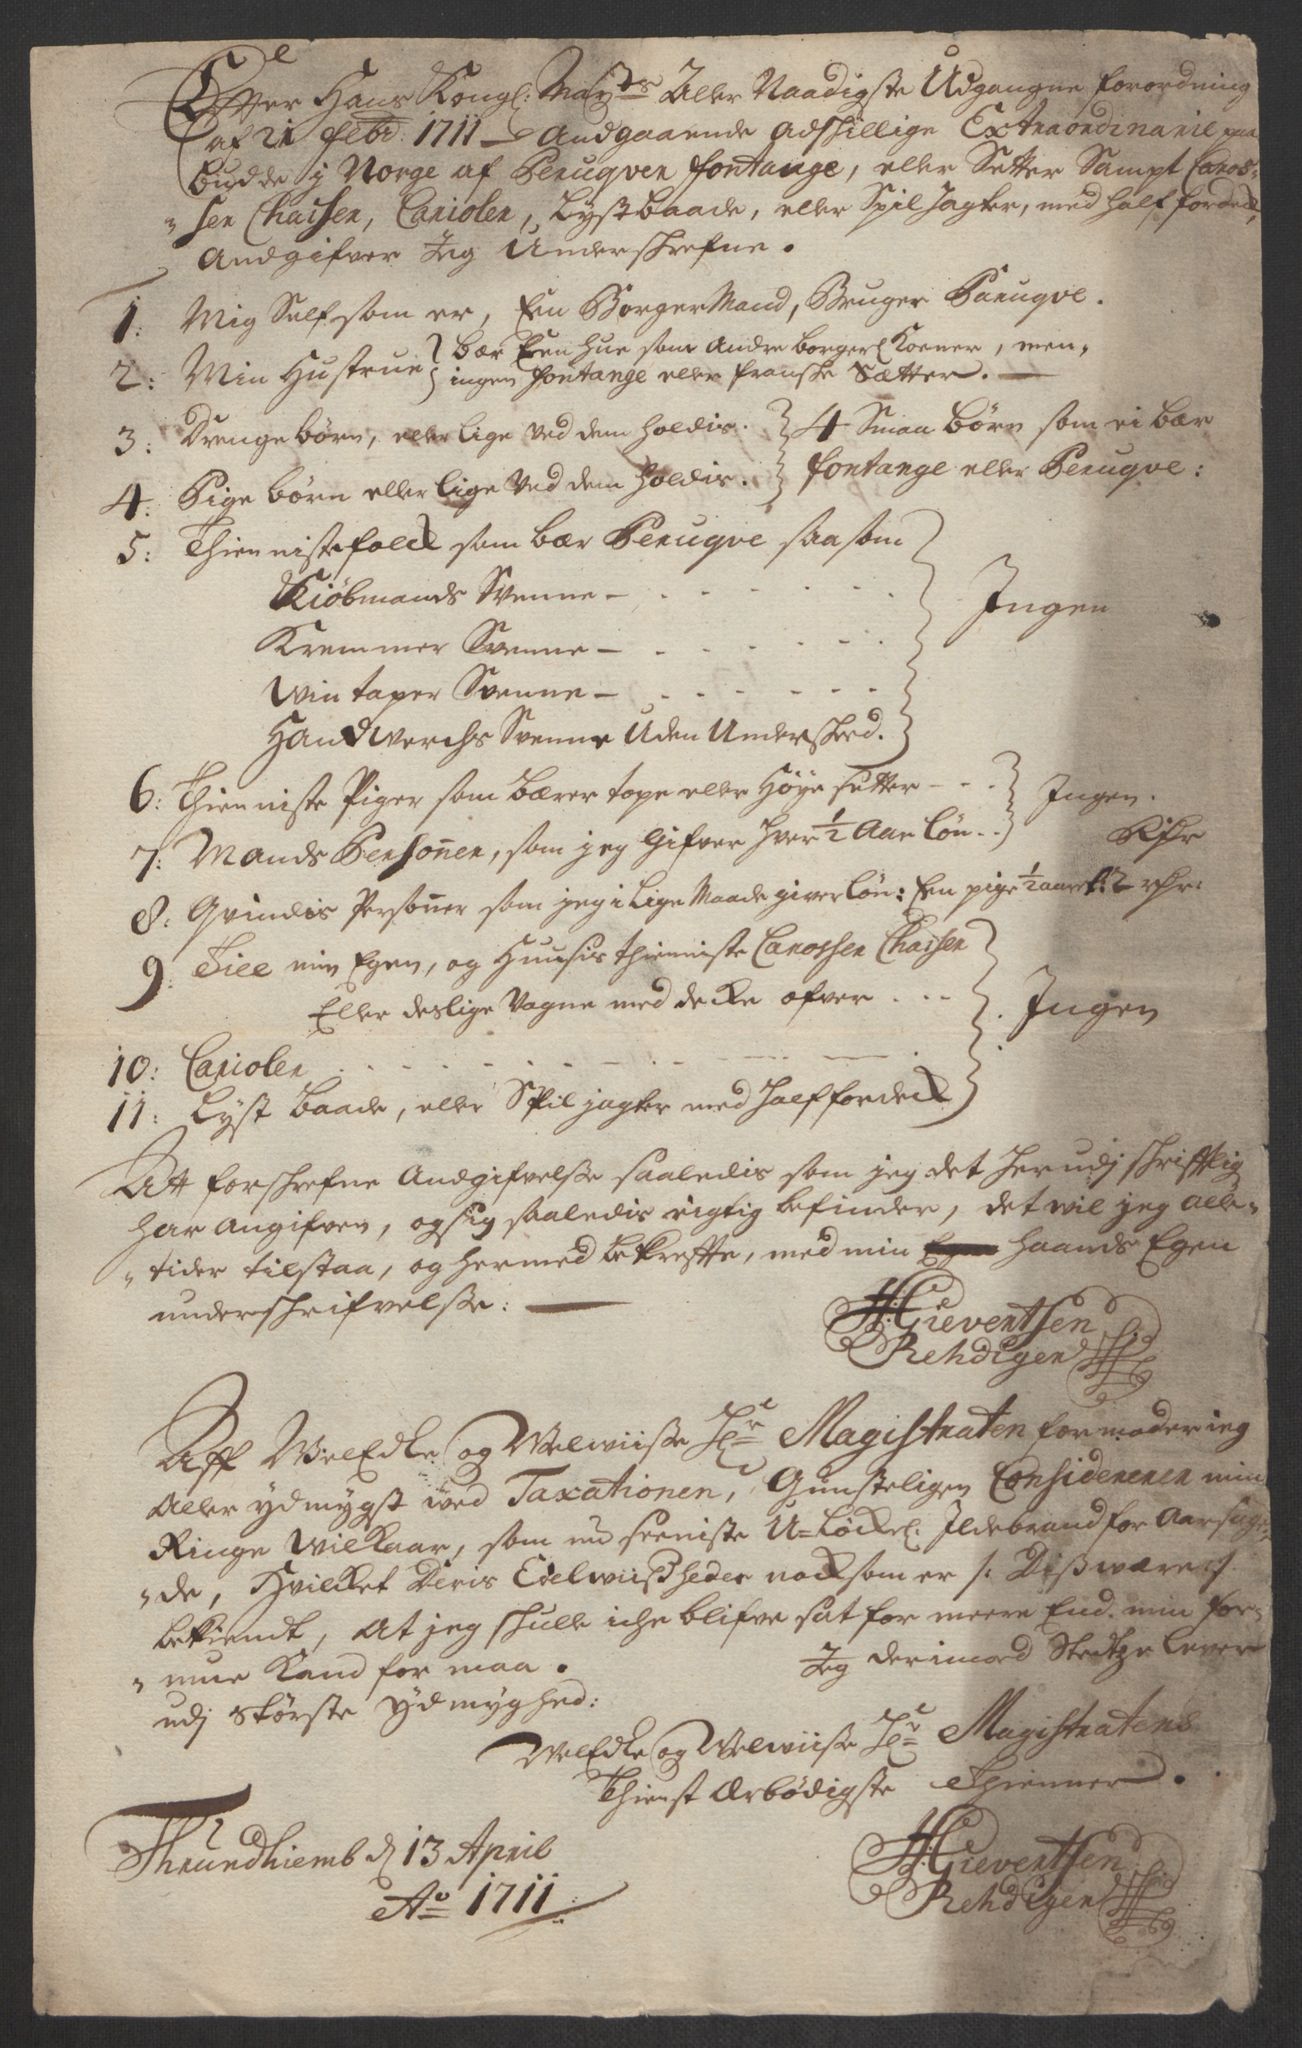 Efter Hans Kongl: Mayts Aller Naadigste Udgangne forordning
af 21 febr: 1711 Andgaaende Adskillige Extraordinarie paa
budde j Norge af Peruqver fontange, eller Setter Sampt Caros-
"sen Chaisen, Cariolen, Lystbaade, eller Spil Jagter, med half fordeck,
Andgifver Jeg Underskrefne.
1: Mig Self som er, Een Borger Mand, Bruger Paruqve.
2: Min Hustrue } bær Een Hue som Andre borger Koener, men,
ingen fontange eller franske Sætter.
3: Drenge børn, eller lige ved dem holdis. } 4 Smaa børn som ei bær
4: Pige børn eller lige Ved dem holdis. } fontange eller Peruqve:
5: Thiennistefolck som bær Peruqve saasom
Kiøbmands Svenne - . . . . . .
Kremmer Svenne - . . . . . . Ingen
Wintaper Svenne - . . . . . .
Handwerchs Svenne Uden Underskeed.
6: Thienniste Piger som bærer tope eller Høye setter - - . } Ingen.
7: Mands Personer, som jeg Gifver hver 1/2 Aar løn . .
8: Qvindis Personer som jeg i Lige Maade giver løn: Een pige 1/2 aaret: 2 rdr:
9: Till min Egen, og Huusis thienniste Carossen Chaisen
Eller deslige Vogne med decke ofver . . . } Ingen
10: Cariolen
11: Lyst baade, eller Spil jagter med half fordeck
At forskrefne Andgifvelse saaledis som jeg det herudj skrifftlig
har angifven, og sig saaledis rigtig befinder, det wil jeg alle-
"tider tilstaa, og hermed bekreffte, med min haands Egen
underschrifvelse:
H: Gievertsen
Rehdigen
Aff WelEdle og Welwiise Hr Magistraten formoder ieg
Aller ydmygst ved Taxationen, Gunsteligen Considererer min
Ringe Wilkaar, som ved seeniste U-Løckel. Ildebrand foraarsag-
"de, Hvilcket Deris Edelwiisheder nocksom er /: Dissværre :/
bekiendt, At jeg skulle iche blifve sat for meere End. min for-
"mue Kand formaa. Jeg derimod Stedtze lever
udj Største Ydmyghed:
WelEdle og Welwiise Hr Magistratens
Thienst Ærbødigste Thienner.
Thrundhiemb d 13 April
Ao 1711
H: Gievertsen
Rehdigen